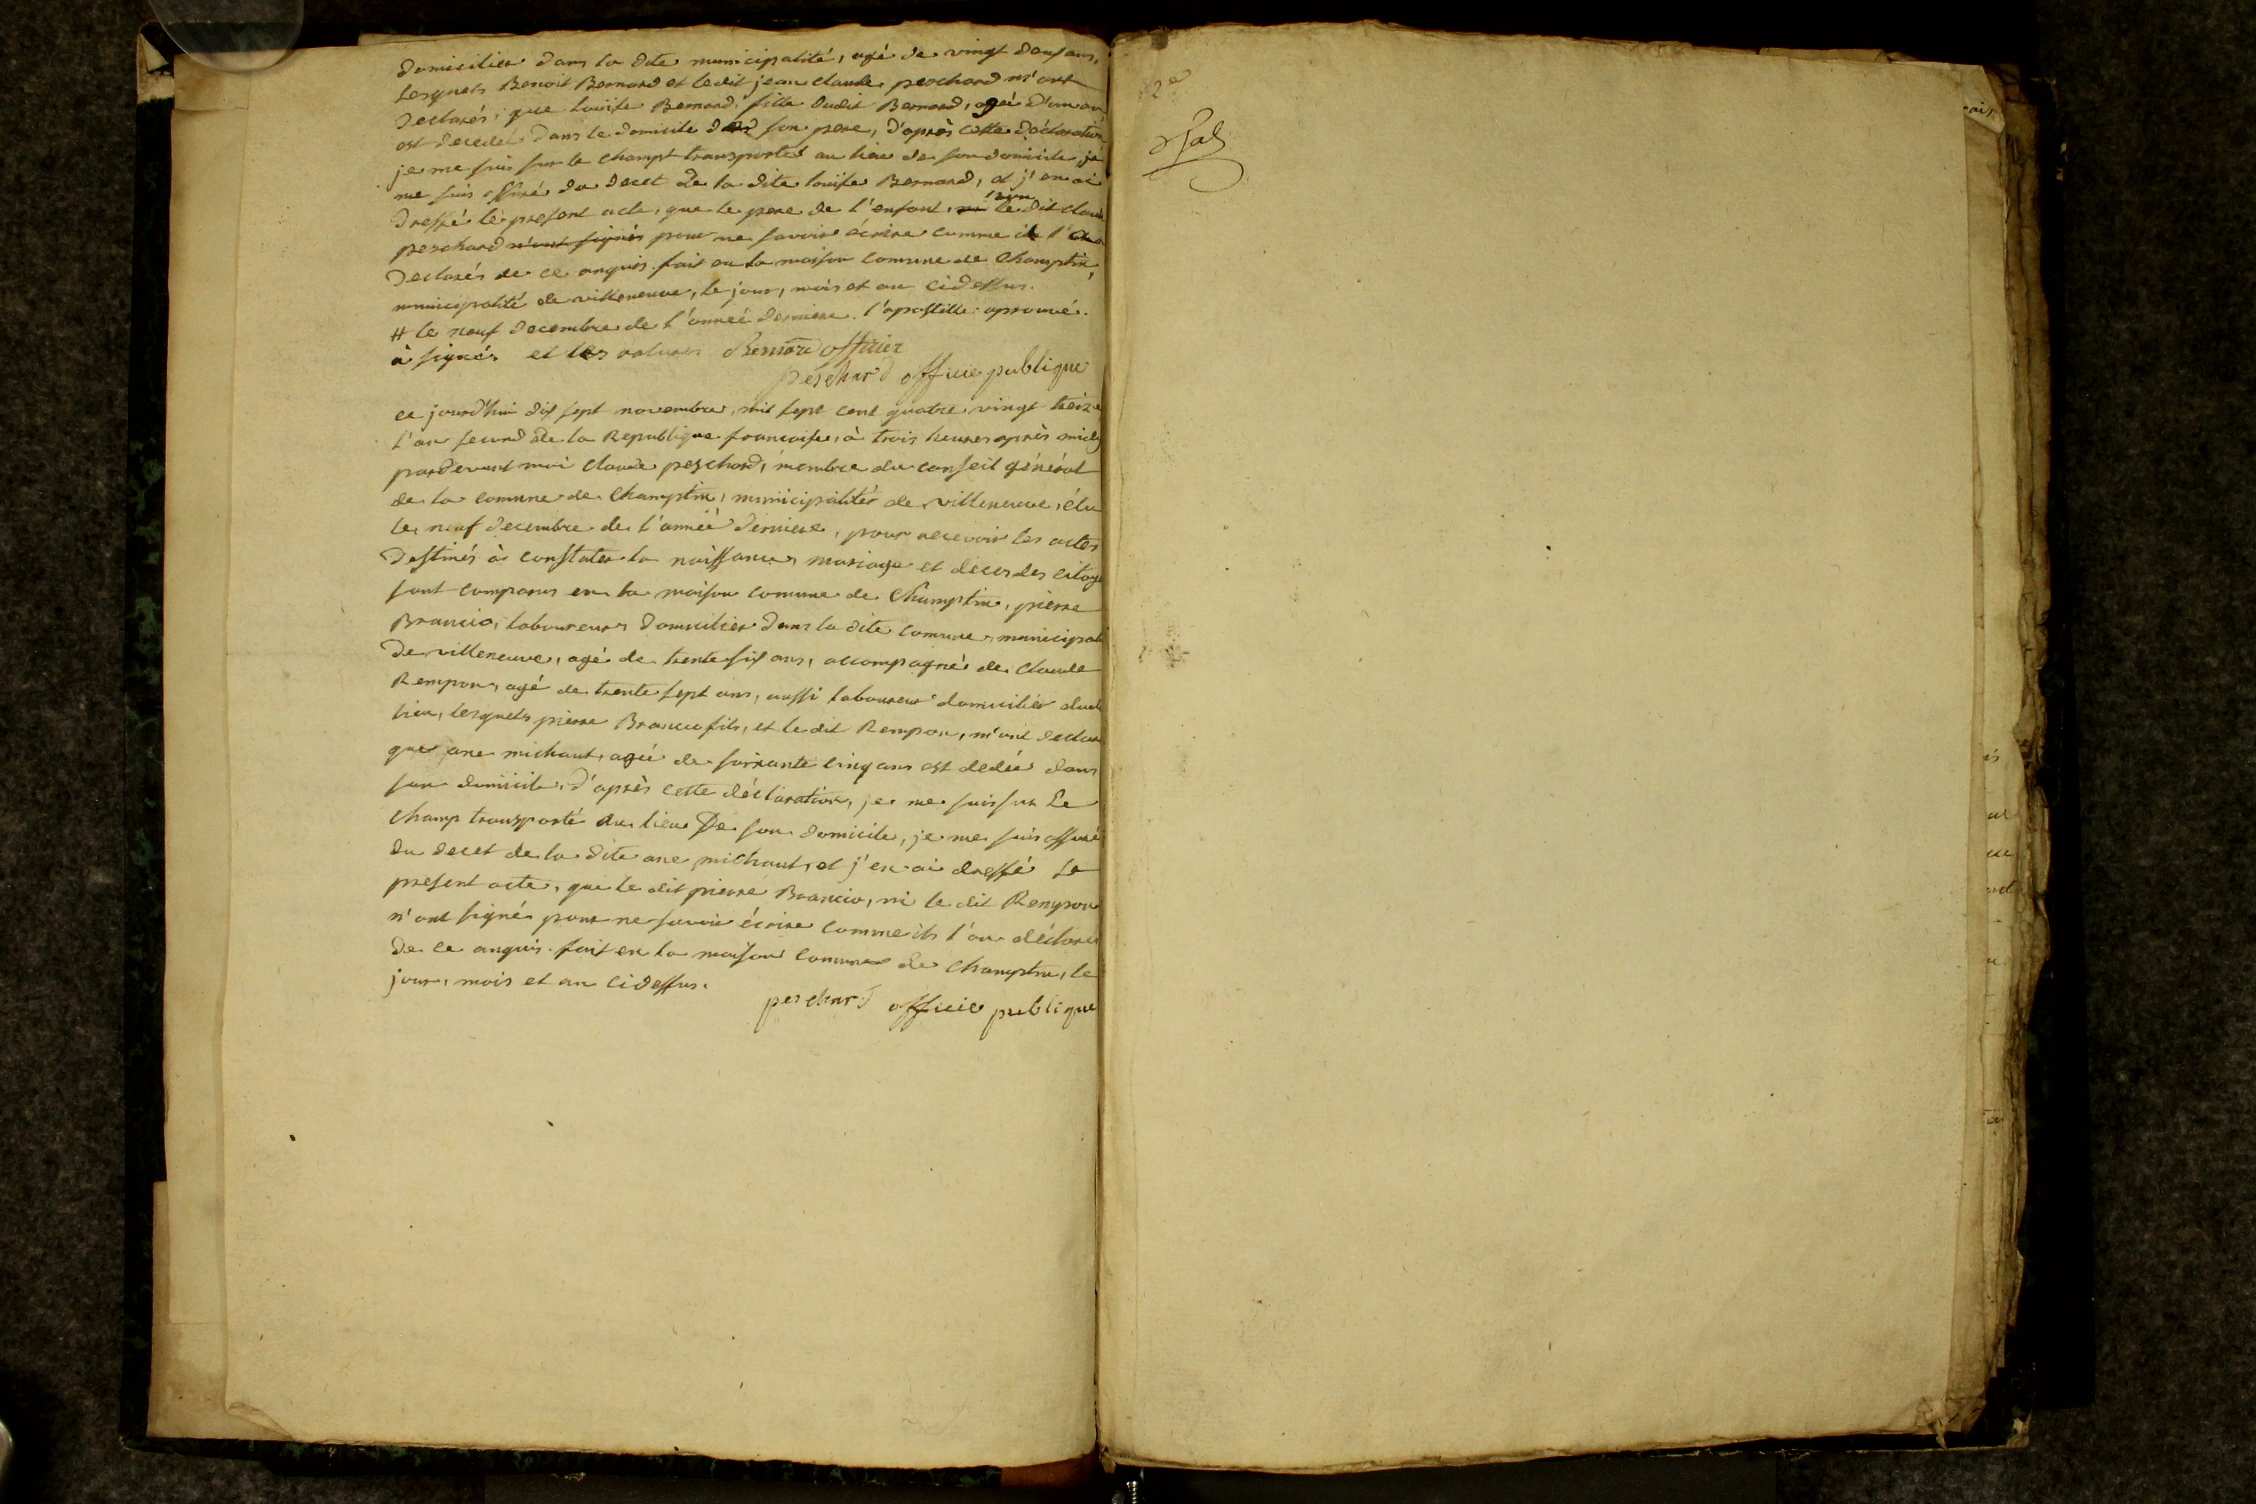 domicilier dans la dite municipalité, agé de vingt deux ans,
lesquels Benoit Bernard et ledit jean claude perchard m'ont
declarés, que louïse Bernard, fille dudit Bernard, ageé d'un an
est decedeé dans le domicile de son pere, d'après cette déclaration
je me suis sur le champt transportés au lieu de son domicile, je
me suis assuré du decet de la dite louïse Bernard, et j'en ai
dressé le present acte, que le pere de l'enfant, ni le dit claude
perchard n'ont signés pour ne savoir écrire comme il l'a
declarés de ce anquis. fait en la maison comune de champtin,
municipalité de villeneuve, le jour, mois et an cidessus.
# le neuf decembre de l'anneé derniere. l'apostille aprouvé.
à signés et les ratures Bernard officier
peschard officie publique
ce jourd'hui dix sept novembre, mil sept cent quatre vingt treize
l'an second de la Republique francaise, à trois heures après midy
pardevant moi claude peschard, membre du conseil général
de la comune de champtin, municipalités de villeneuve, élu
le neuf decembre de l'anneé derniere, pour recevoir les actes
destinés à constater la naissance, mariage et deces des citoye
sont comparus en la maison comune de champtin, pierre
Brancio, laboureur, domicilier dans la dite comune, municipali
de villeneuve, agé de trente six ans, accompagné de claude
Rempon, agé de trente sept ans, aussi laboureur domicilier dud
lieu, lesquels pierre Brancio fils, et le dit Rempon, m'ont declar
que ane michaut, ageé de soixante cinq ans est dedeé dans
son domicile, d'après cette déclaration, je me suis sur le
champ transporté au lieu De son domicile, je me suis assuré
du decet de la dite ane michaut, et j'en ai dressé le
present acte, que le dit pierre Brancio, ni le dit Rempon
n'ont signé pour ne savoir écrire comme ils l'on déclaré
de ce anquis. fait en la maison comune de champtin, le
jour, mois et an cidessus.
peschard officie publique